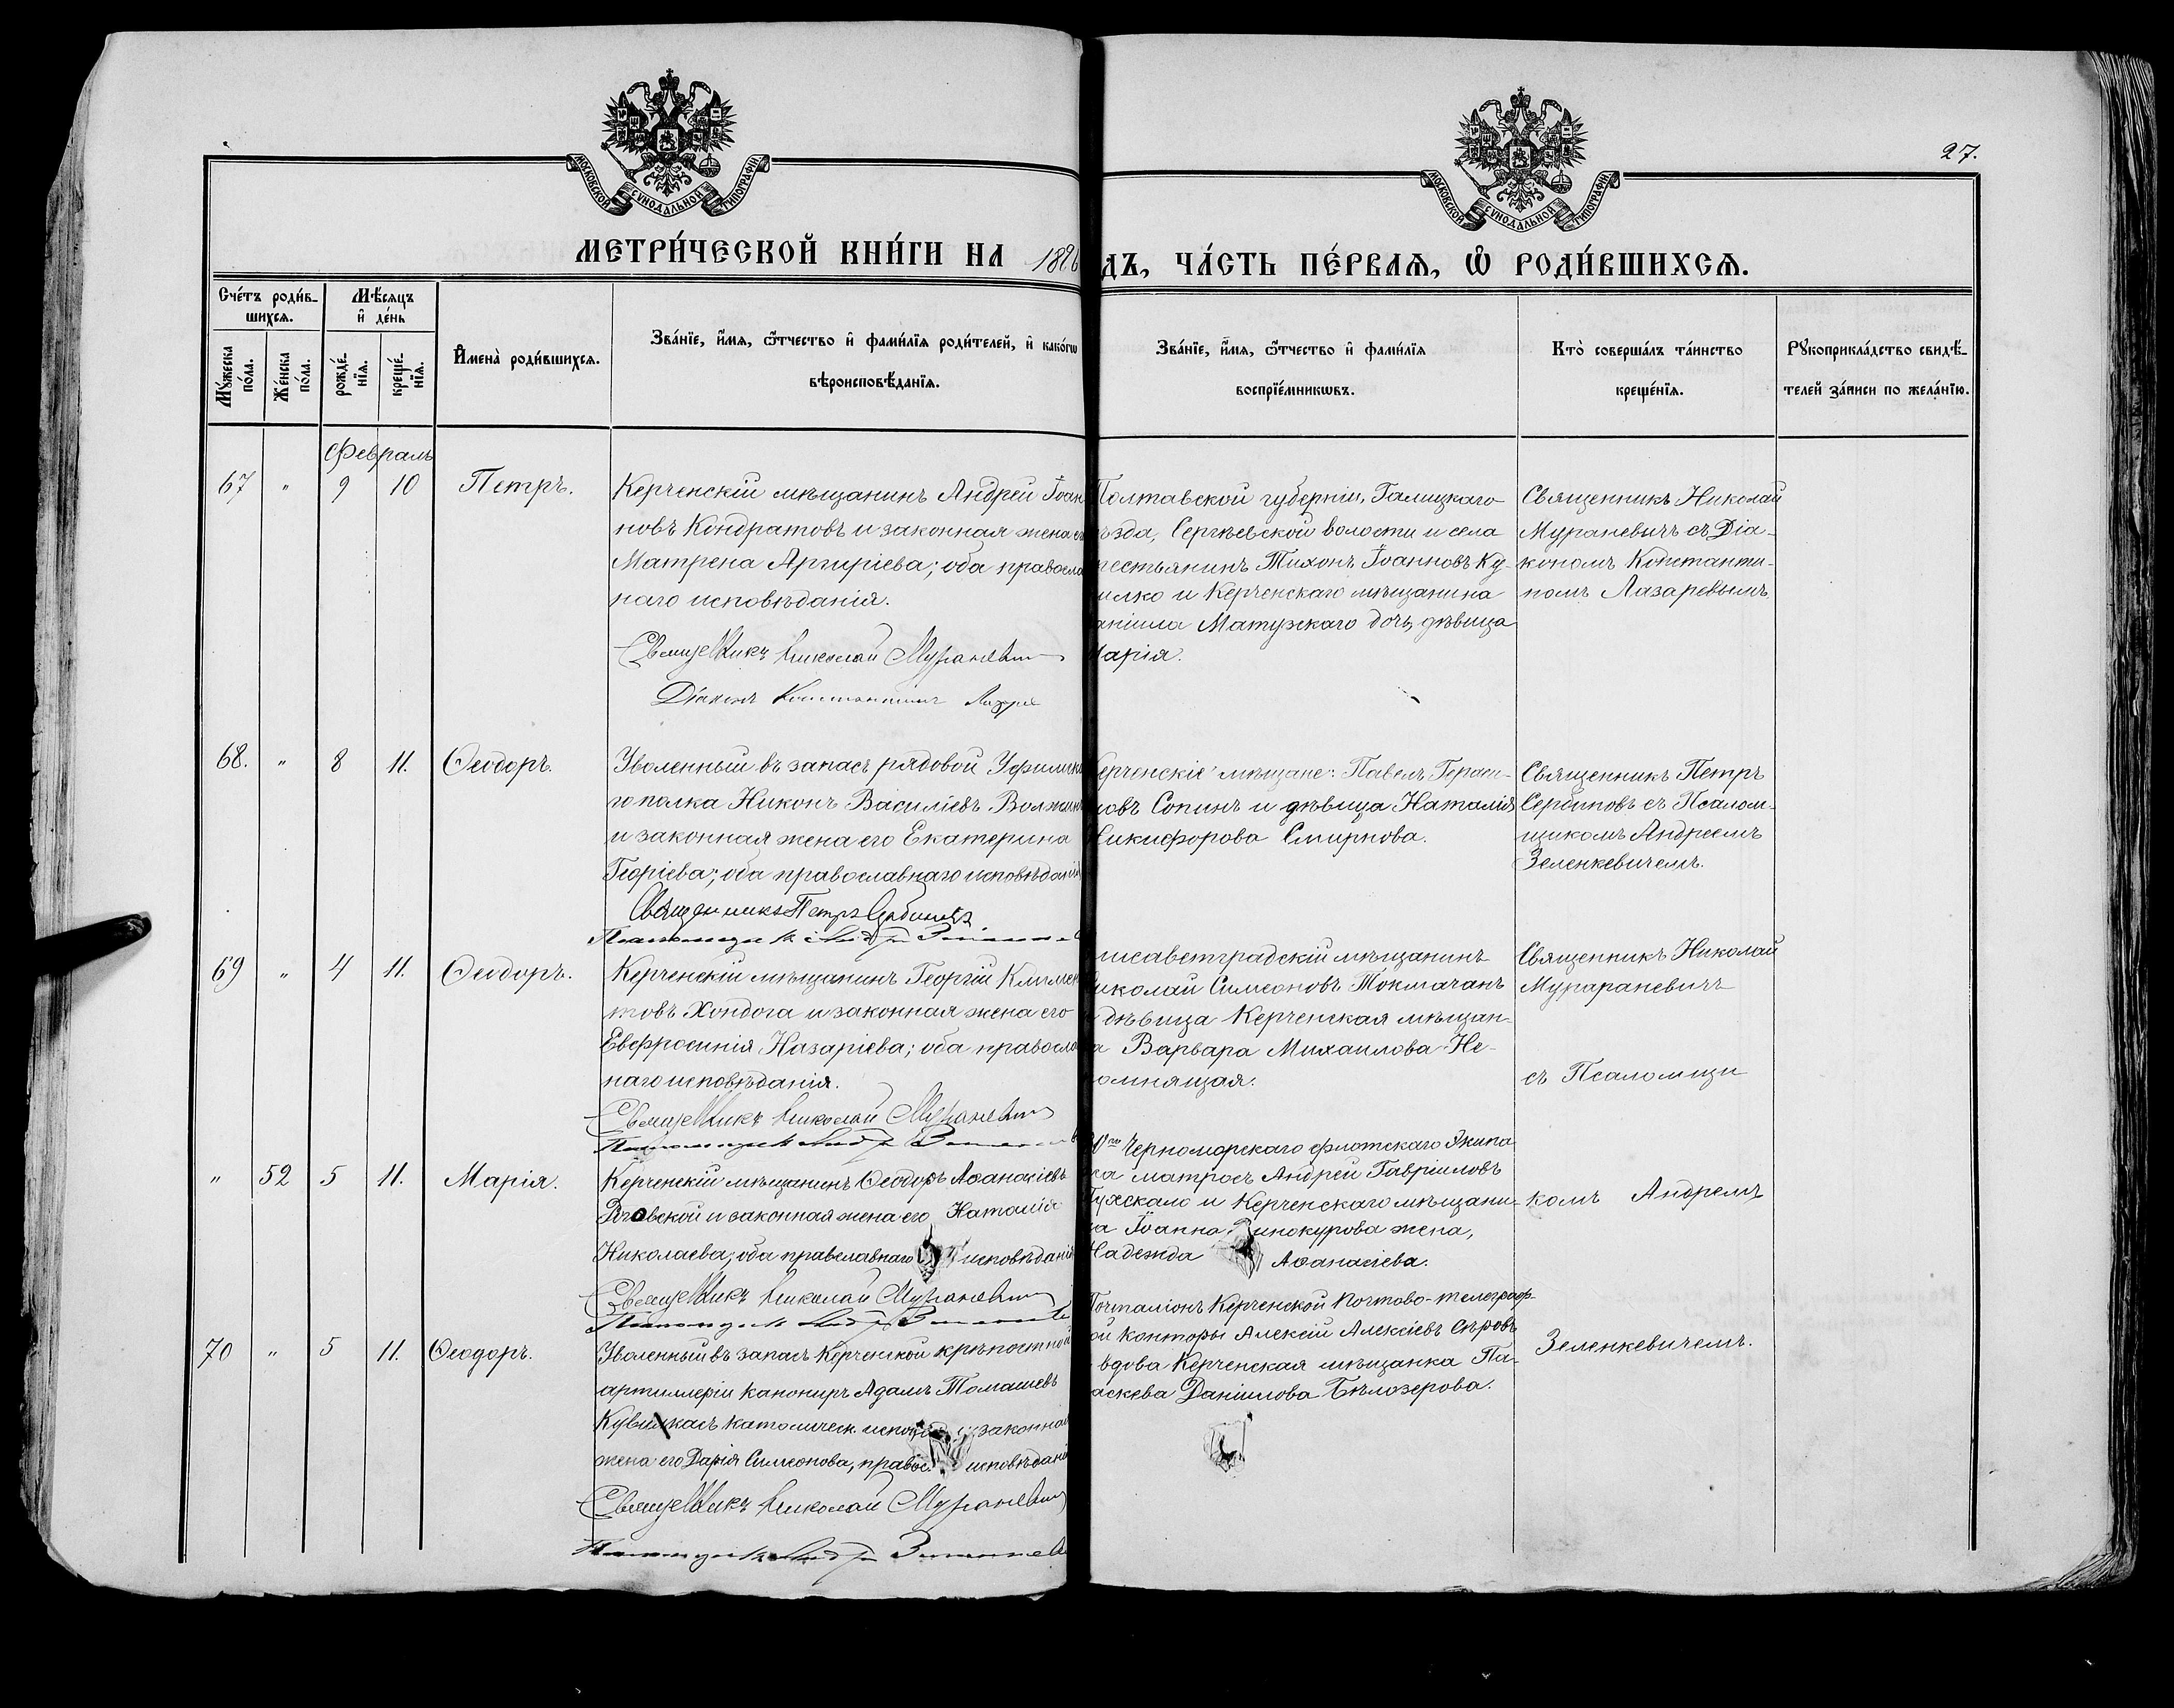 27.
МОСКОВСКОЙ СѴНОДАЛЬНОЙ ТИПОГРАФІИ
МОСКОВСКОЙ СѴНОДАЛЬНОЙ ТИПОГРАФІИ
МЕТРИ́ЧЕСКОЙ КНИ́ГИ НА 1896
ДЪ, ЧА́СТЬ ПЕ́РВАѦ, Ѡ РОДИ́ВШИХСѦ.
Сче́тъ роди́в-
шихсѧ.
Мꙋ́жеска
по́ла.
Же́нска
по́ла.
Мѣ́сѧцъ
и҆ де́нь
рожде́-
нїѧ.
креще́-
нїѧ.
И҆мена̀ роди́вшихсѧ.
Зва́нїе, и҆́мѧ, ѻ҆́тчество и҆ фами́лїѧ роди́телей, и҆ како́гѡ
вѣроисповѣ́данїѧ.
Зва́нїе, и҆́мѧ, ѻ҆́тчество и҆ фами́лїѧ
воспрїе́мникѡвъ.
Кто̀ соверша́лъ та́инство
креще́нїѧ.
Рꙋкоприкла́дство свидѣ́-
телей за́писи по жела́нїю.
Февраль
67 " 9 10 Петръ.
Керченскій мѣщанинъ Андрей Іоан
новъ Кондратовъ и законная жена ег
Матрена Аргиріева; оба правосла
наго исповѣданія.
Священникъ Николай Мураневич
Діаконъ Константинъ Лазаре
Полтавской губерніи, Галицкаго
ѣзда, Сергѣевской волости и села
рестьянинъ Тихонъ Іоанновъ Ку-
илко и Керченскаго мѣщанина
аніила Матузскаго дочь, дѣвица
Марія.
Священникъ Николай
Мураневичъ съ Діа-
кономъ Константи-
номъ Лазаревымъ.
68. " 8 11. Ѳеодоръ.
Уволенный въ запасъ рядовой
го полка Никонъ Василіевъ
и законная жена его Екатерина
Георгіева; оба православнаго исповѣданія
Священникъ Петръ Сербиновъ
Псаломщикъ Андр Зеленкев
Керченскіе мѣщане: Павелъ Гераси-
мовъ Сопинъ и дѣвица Наталія
Никифорова Смирнова.
Священникъ Петръ
Сербиновъ съ Псалом-
щикомъ Андреемъ
Зеленкевичемъ.
69 " 4 11. Ѳеодоръ.
Керченскій мѣщанинъ Георгій Климен
товъ Хондога и законная жена его
Евфросинія Назаріева; оба правосла
наго исповѣданія.
Священникъ Николай Мураневич
Псаломщикъ Андр Зеленкев
лисаветградскій мѣщанинъ
иколай Симеоновъ Токмачанъ
дѣвица Керченская мѣщан-
а Варвара Михаилова Не-
омнящая.
Священникъ Николай
Мурараневичъ
съ Псаломщи
" 52 5 11. Марія.
Керченскій мѣщанинъ Ѳеодоръ Аѳанасіевъ
Роговской и законная жена его Наталія
Николаева; оба православнаго исповѣданія
Священникъ Николай Мураневич
Псаломщикъ Андр Зеленкев
Черноморскаго флотскаго Экипа
жа матросъ Андрей Гавріиловъ
и Керченскаго мѣщани-
на Іоанна Винокурова жена,
Надежда Аѳанасіева.
комъ Андреемъ
70 " 5 11. Ѳеодоръ.
Уволенный въ запасъ Керченской крѣпостной
артиллеріи канониръ Адамъ Томашевъ
католическ. законная
жена его Дарія Симеонова, правос. исповѣдані
Священникъ Николай Мураневич
Псаломщикъ Андр Зеленкев
Почталіонъ Керченской Почтово-телеграф-
ой Конторы Алексій Алексіевъ Сѣровъ
вдова Керченская мѣщанка Па-
аскева Даніилова Бѣлозерова.
Зеленкевичемъ.